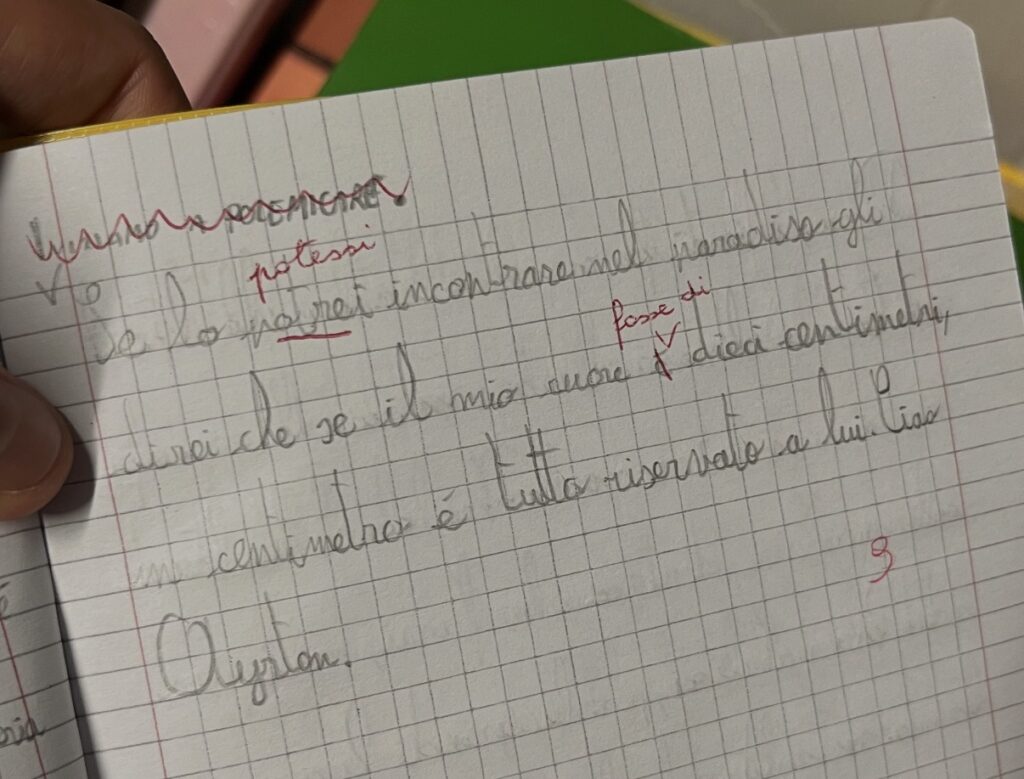 potessi
Io
Se lo potrei incontrare nel paradiso gli
fosse di
direi che se il mio cuore è dieci centimetri,
un centimetro é tutto riservato a lui. Ciao
Ayrton.
9